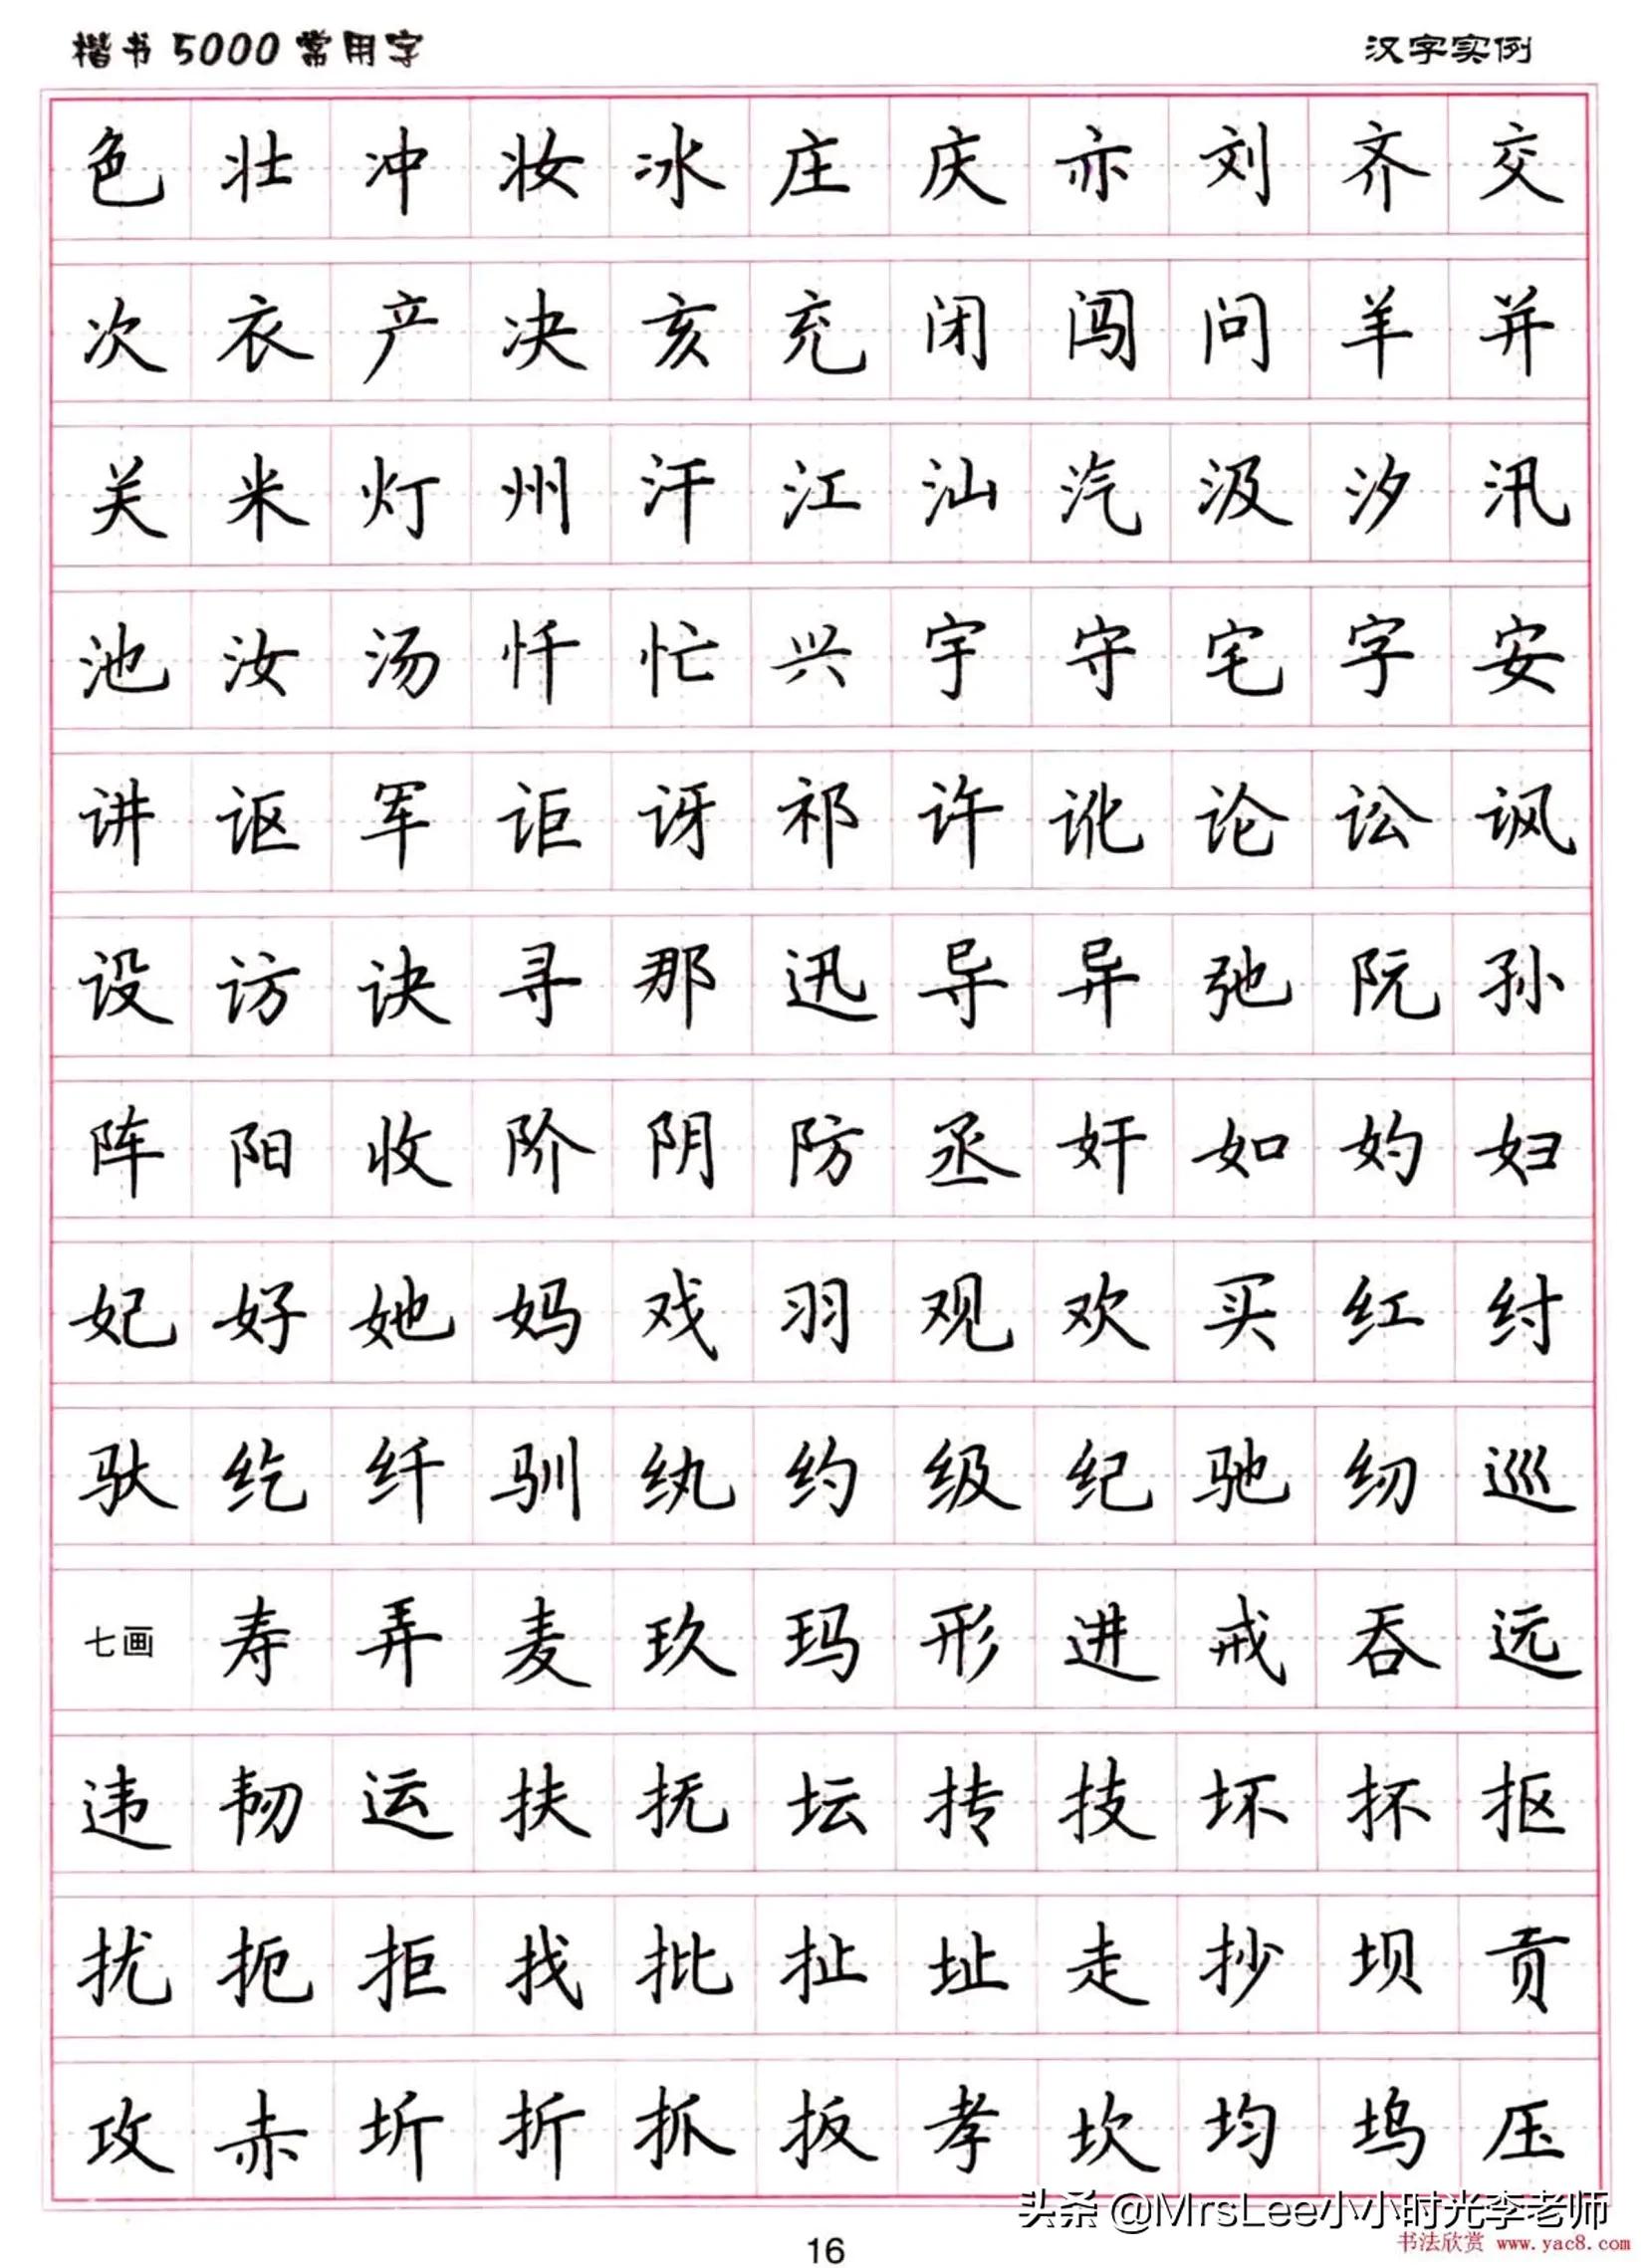 楷书5000常用字 汉字实例
色 壮 冲 妆 冰 庄 庆 亦 刘 齐 交
次 衣 产 决 亥 充 闭 闯 问 羊 并
关 米 灯 州 汗 江 汕 汽 汲 汐 汛
池 汝 汤 忏 忙 兴 宇 守 宅 字 安
讲 讴 军 讵 讶 祁 许 讹 论 讼 讽
设 访 诀 寻 那 迅 导 异 弛 阮 孙
阵 阳 收 阶 阴 防 丞 奸 如 妁 妇
妃 好 她 妈 戏 羽 观 欢 买 红 纣
驮 纥 纤 驯 纨 约 级 纪 驰 纫 巡
七画 寿 弄 麦 玖 玛 形 进 戒 吞 远
违 韧 运 扶 抚 坛 抟 技 坏 抔 抠
扰 扼 拒 找 批 扯 址 走 抄 坝 贡
攻 赤 圻 折 抓 扳 孝 坎 均 坞 压
头条 @MrsLee小小时光李老师
16
书法欣赏 www.yac8.com